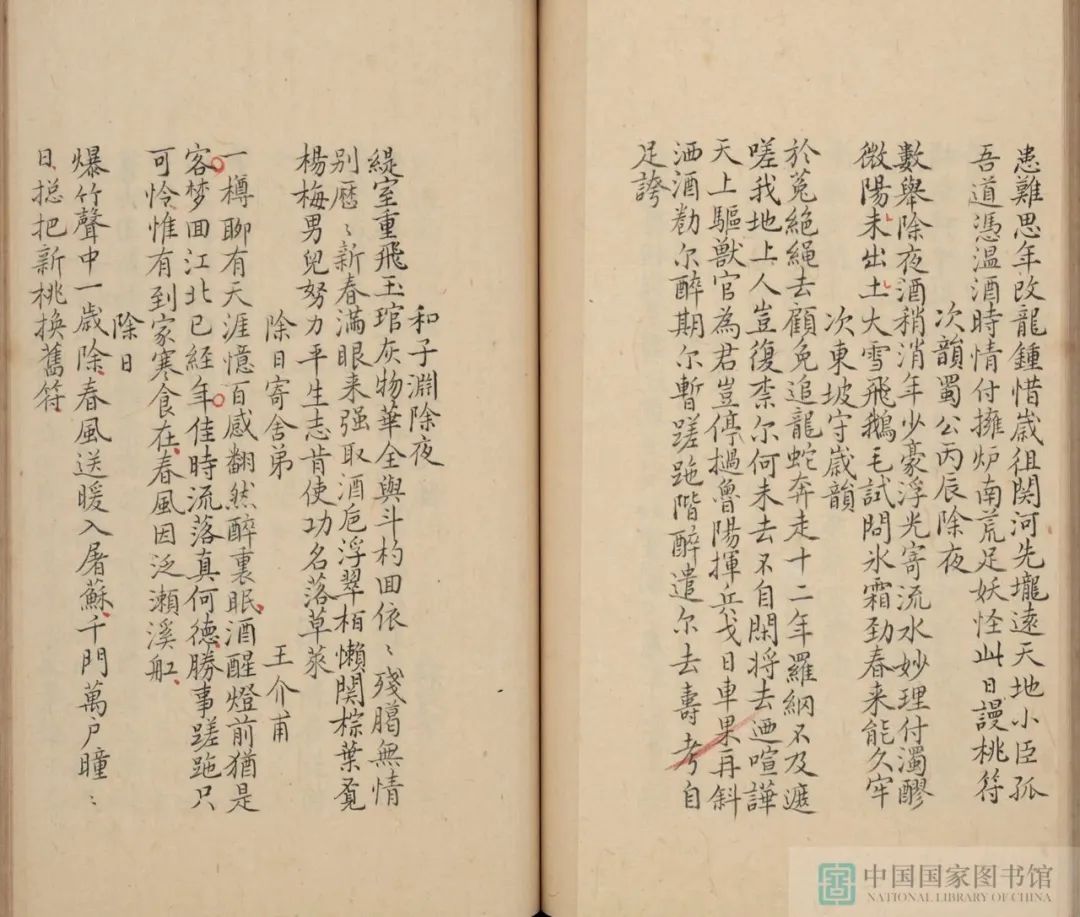 患難思年改龍鍾惜歲徂関河先壠遠天地小臣孤
吾道憑温酒時情付擁炉南荒足妖怪此日謾桃符
次韻蜀公丙辰除夜
數舉除夜酒稍消年少豪浮光寄流水妙理付濁醪
微陽未出土大雪飛鵝毛試問氷霜勁春来能久牢
次東坡守歲韻
於菟絶繩去顧免追龍蛇奔走十二年羅網不及遮
嗟我地上人豈復柰尔何未去不自閑将去廼喧譁
天上驅獸官為君豈停撾魯陽揮兵戈日車果再斜
洒酒勸尔醉期尔暫蹉跎階醉遣尔去壽考自
足誇
和子淵除夜
緹室重飛玉琯灰物華全與斗杓囬依〻殘臈無情
别歷〻新春滿眼来强取酒巵浮翠栢懶関椶葉覔
楊梅男兒努力平生志肯使功名落草萊
除日寄舍弟 王介甫
一樽聊有天涯憶百感翻然醉裏眠酒醒燈前猶是
客梦囬江北已經年佳時流落真何德勝事蹉跎只
可怜惟有到家寒食在春風因泛瀬溪舡
除日
爆竹聲中一歲除春風送暖入屠蘇千門萬户曈〻
日揔把新桃換舊符
中国国家图书馆
NATIONAL LIBRARY OF CHINA